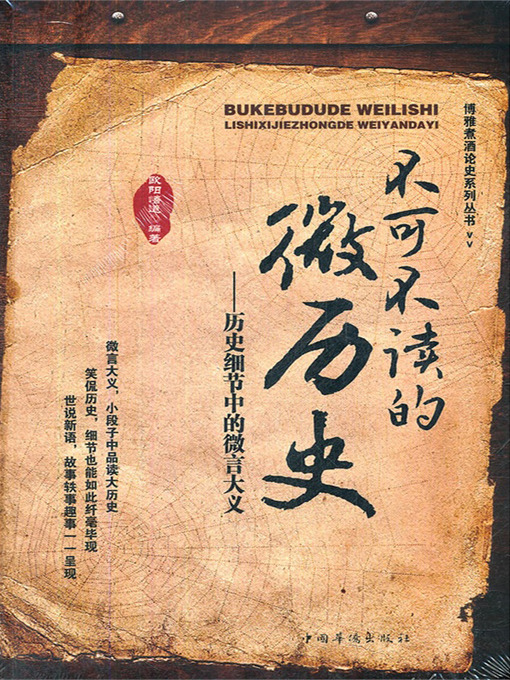 BUKEBUDUDE WEILISHI
LISHIXIJIEZHONGDE WEIYANDAYI
博雅煮酒论史系列丛书>>
不可不读的
微历史
——历史细节中的微言大义
欧阳悟道 编著
微言大义，小段子中品读大历史
笑侃历史，细节也能如此纤毫毕现
世说新语，故事轶事趣事一一呈现
中国华侨出版社